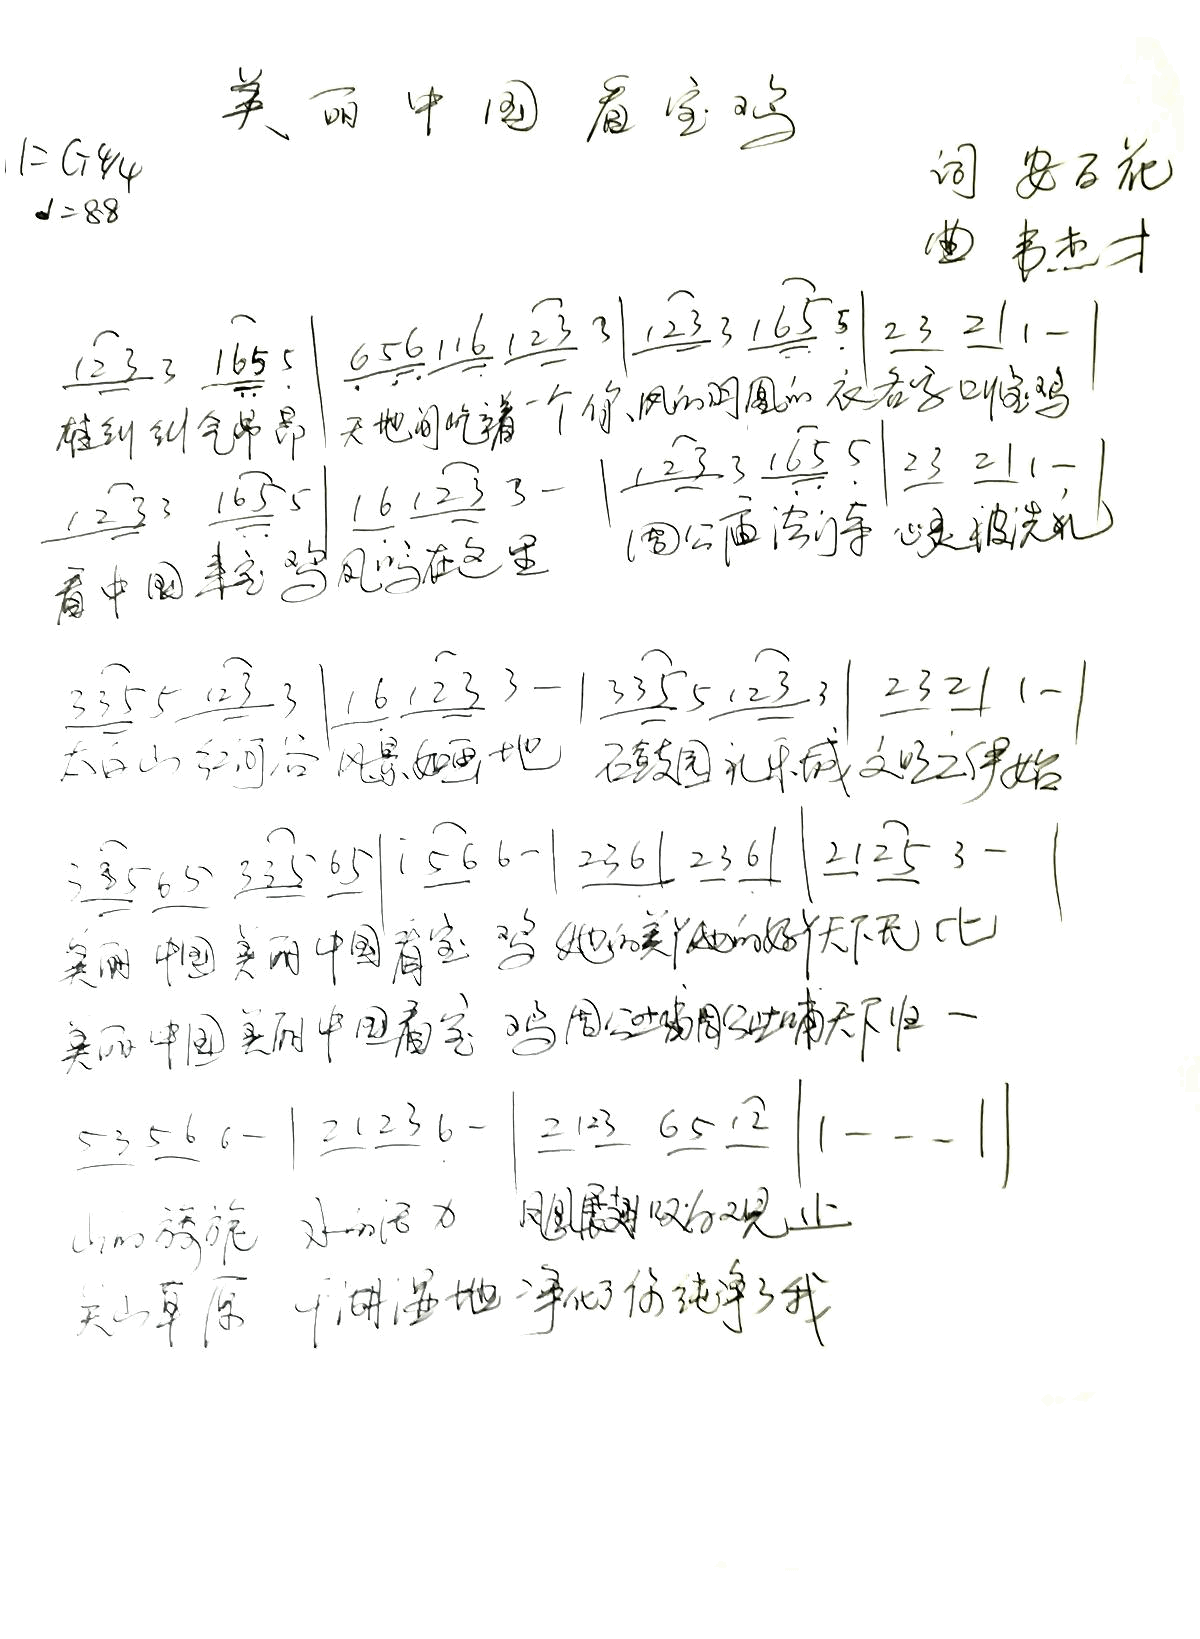 美丽中国看宝鸡
1=G 4/4
♩=88
词 安百花
曲 韦杰才
1233 1655 | 656116 1233 3 | 1233 1655 | 23 21 1 - |
雄纠纠气昂昂 天地间吃着一个你、凤的凰的衣名字叫宝鸡
1233 1655 | 16 123 3 - | 1233 1655 | 23 21 1 - |
看中国来宝鸡凤鸣在这里 周公庙法门寺 心灵被洗礼
3355 1233 | 16 123 3 - | 3355 1233 | 2321 1 - |
太白山红河谷 风景如画地 石鼓园礼乐城文明之伊始
3565 33565 | i 56 6 - | 2361 2361 | 2125 3 - |
美丽中国美丽中国看宝鸡她的美丫她的好丫天下无比
美丽中国美丽中国看宝鸡周公吐哺周公吐哺天下归一
5356 6 - | 2123 6 - | 2123 65 12 | 1 - - - ||
山的旖旎 水的活力 凤凰展翅叹为观止
关山草原 千湖湿地 净化了你纯净了我